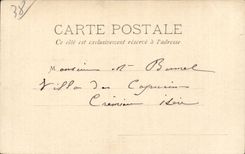 38
CARTE POSTALE
Ce côté est exclusivement réservé à l'adresse
Monsieur
Villa des Capucins
Crémieu Isère